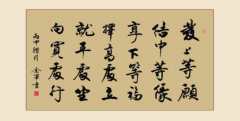 發上等願
結中等緣
享下等福
擇高處立
就平處坐
向寬處行